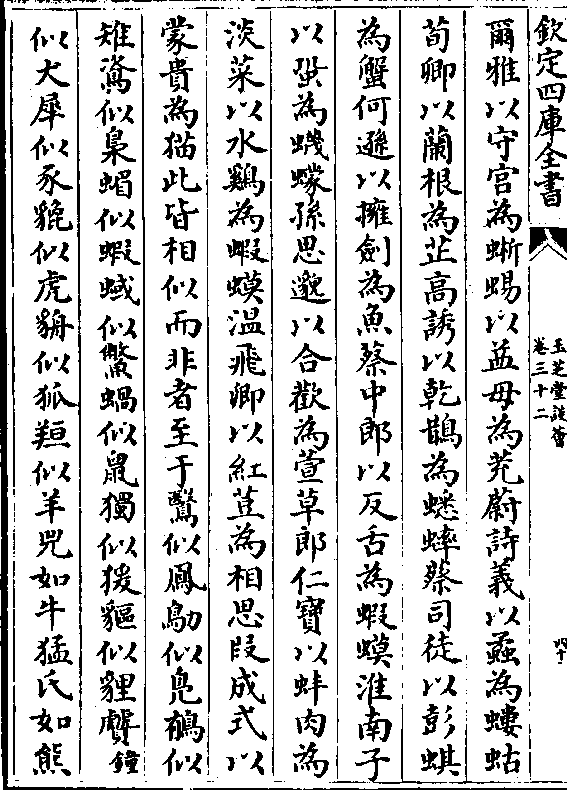 欽定四庫全書
玉芝堂談薈
卷三十二
四十
爾雅以守宮為蜥蜴以益母為茺蔚詩義以蟊為螻蛄
荀卿以蘭根為芷高誘以乾鵲為蟋蟀蔡司徒以彭蜞
為蟹何遜以擁劍為魚蔡中郎以反舌為蝦蟆淮南子
以蛩為蠛蠓孫思邈以合歡為萱草郎仁寶以蚌肉為
淡菜以水鷄為蝦蟆溫飛卿以紅荳為相思段成式以
蒙貴為猫此皆相似而非者至于鷖似鳳勮似鳧鶺似
雉鵀似梟蝐似蝦蜮似鱉蝸似鼠獨似猨貙似貍麔鐘
似犬犀似豕貔似虎貈似狐羬似羊兕如牛猛氏如熊